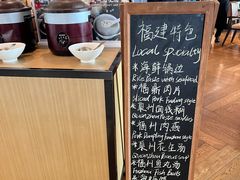 福建特色
Local specialty
*海鲜锅边
Rice Paste with Seafood
*福鼎肉片
Sliced Pork Pudding style
*泉州面线糊
Quanzhou Paste noodles
*福州肉燕
Pork Dumpling Fuzhou style
*泉州花生汤
Quanzhou Peanut soup
*福州鱼丸汤
Fuzhou Fish Balls